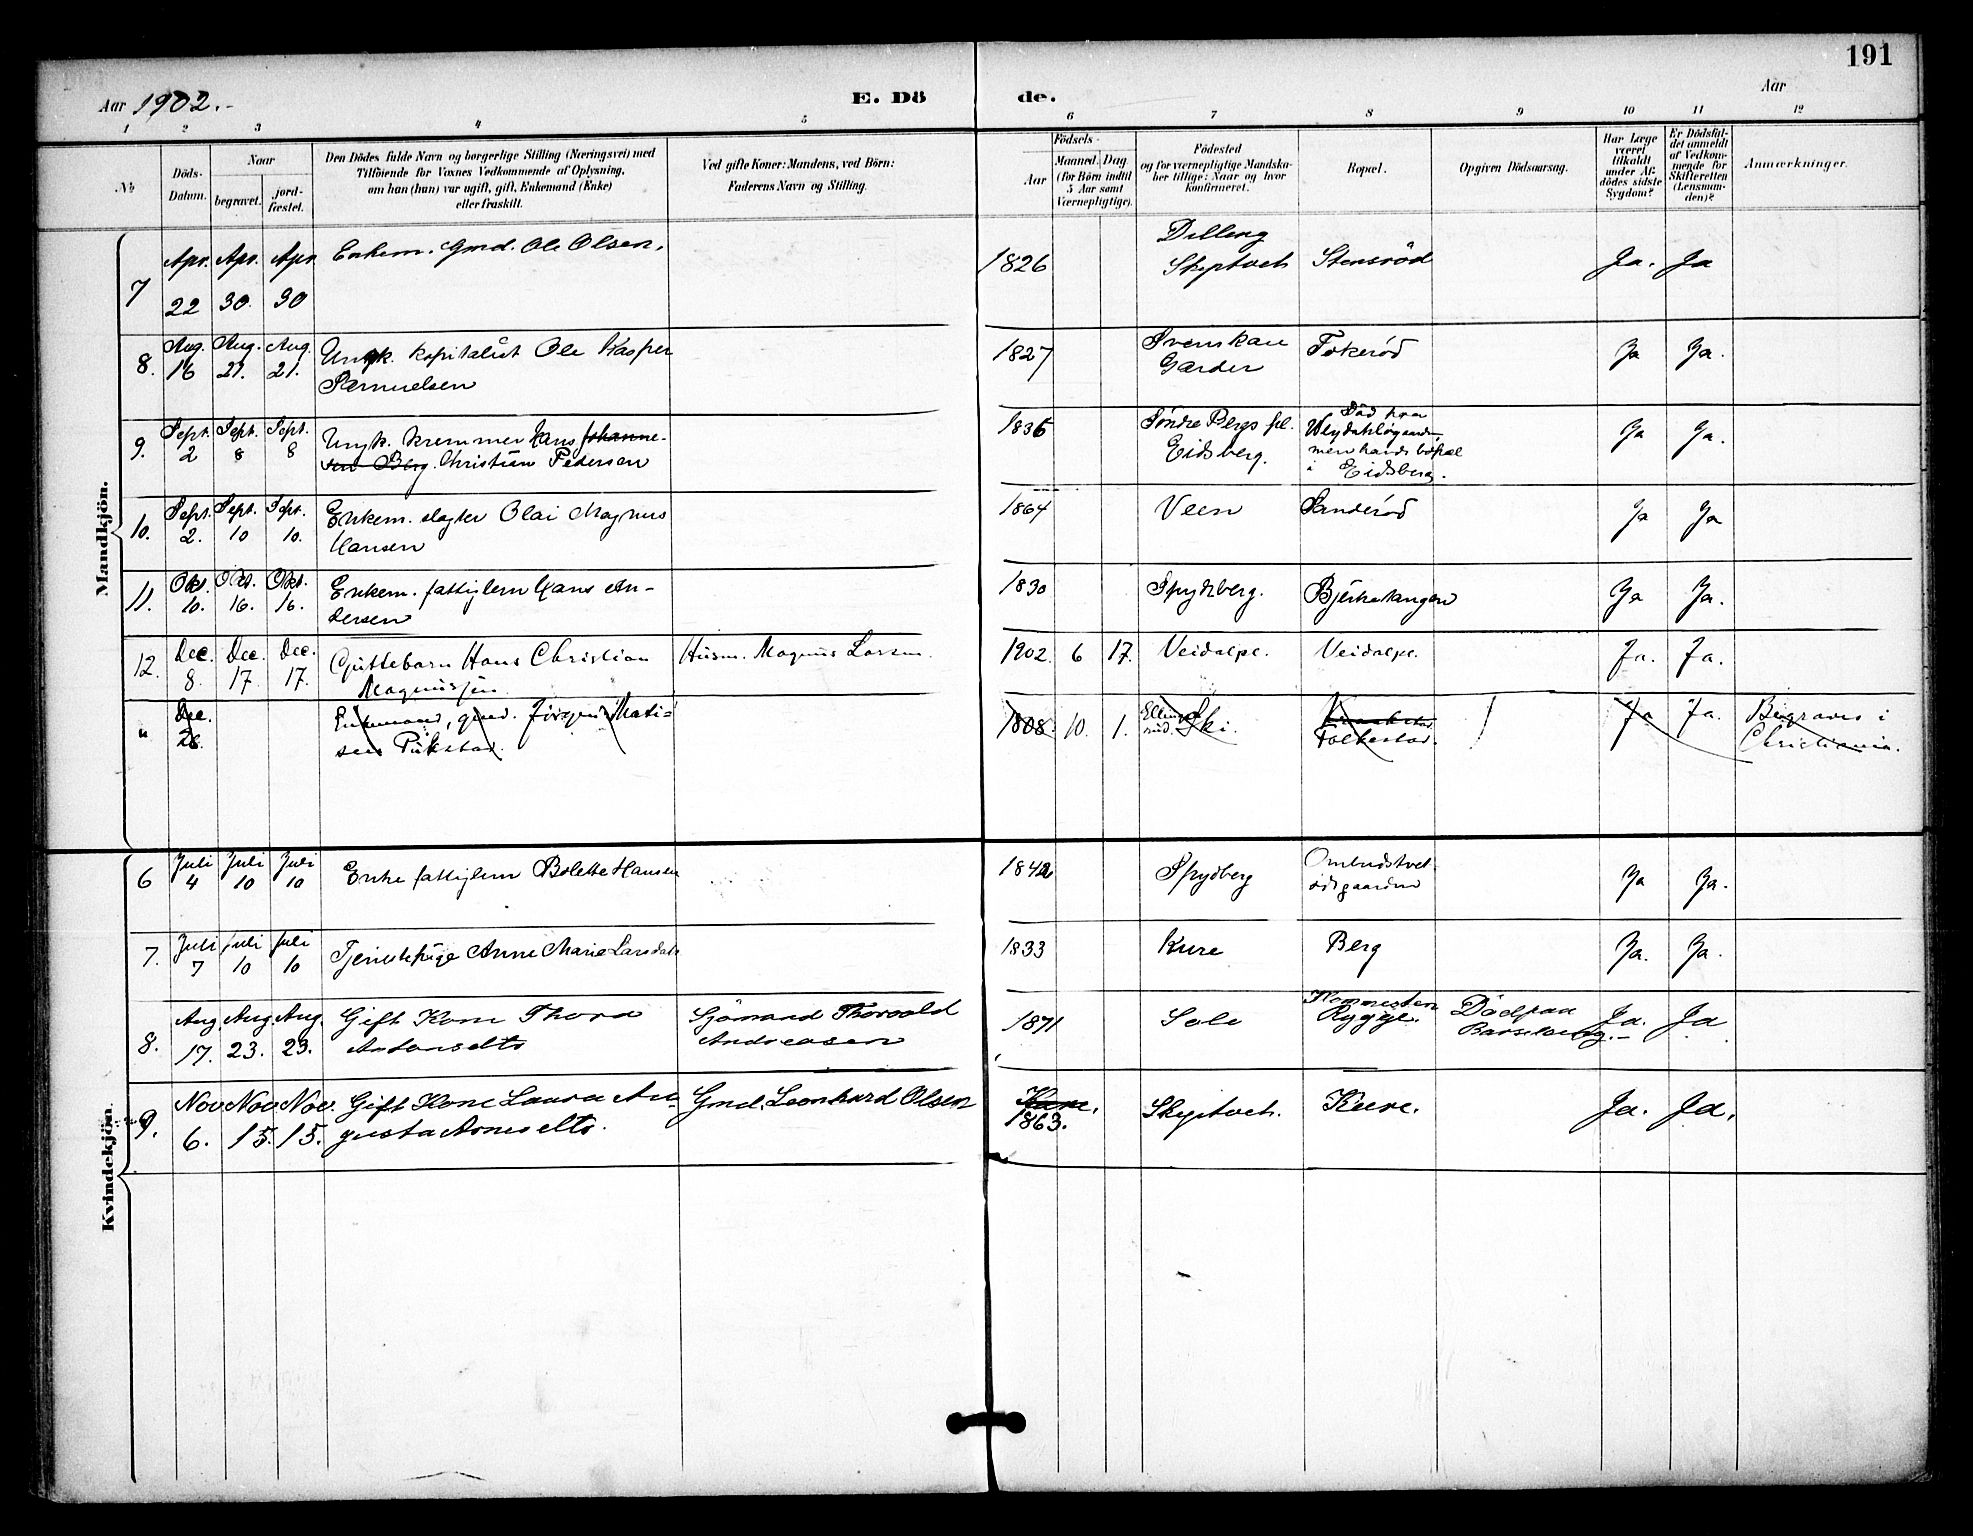 191
Aar 1902.
E. Dö de.
Aar
1 2 3 4 5 6 7 8 9 10 11 12
No
Döds-Datum.
Naar
begravet.
jord-fæstet.
Den Dödes fulde Navn og borgerlige Stilling (Næringsvei) med
Tilföiende for Voxnes Vedkommende af Oplysning,
om han (hun) var ugift, gift, Enkemand (Enke)
eller fraskilt.
Ved gifte Koner: Mandens, ved Börn:
Faderens Navn og Stilling.
Födsels-
Aar
Maaned. Dag
(for Börn indtil
5 Aar samt
Værnepligtige).
Födested
og for værnepligtige Mandska-
ber tillige: Naar og hvor
konfirmeret.
Bopæl.
Opgiven Dödsaarsag.
Har Læge
været
tilkaldt
under Af-
dödes sidste
Sygdom?
Er Dödsfal-
det anmeldt
af Vedkom-
mende for
Skifteretten
(Lensman-
den)?
Anmærkninger.
Mandkjön.
7 Apr. 22 Apr. 30. Apr. 30 Enkem. Gmd. Ole Olsen. 1826 Dilling Skeptvet Stensröd Ja. Ja
8. Aug. 16 Aug. 21. Aug. 21. Ungk. kapitalist Ole Kasper
Samuelsen 1827 Svenskau
Garder Tokeröd Ja Ja.
9. Sept. 2 Sept. 8 Sept. 8 Ungk. kremmer Hans Johanne-
sen Berg. Christian Pedersen 1836 Söndre Bergs pl.
Eidsberg. Död paa
men hands bopæl
i Eidsberg. Ja Ja.
10. Sept. 2. Sept. 10 Sept. 10. Enkem. slagter Olai Magnus
Hansen 1864 Veen Sanderöd Ja Ja
11. Okt. 10. Okt. 16. Okt. 16. Enkem. fattiglem Hans An-
dersen 1830 Spydeberg. Björketangen Ja Ja.
12. Dec. 8. Dec. 17. Dec. 17. Guttebarn Hans Christian
Magnussen Husm. Magnus Larsen. 1902. 6 17. Veidalpl. Veidalpl. Ja. Ja.
" Dec. 26. Enkemand, gmd. Jörgen Mathi-
sen 1808. 10. 1. Ski. Folkestad. Ja Ja. Begraves i
Christiania.
Kvindekjön.
6 Juli 4 Juli 10 Juli 10 Enke fattiglem Bolette Hansen 1842 Spydberg Ja Ja.
7. Juli 7 Juli 10 Juli 10 Tjenestepige Anne Marie Larsdatr 1833 Kure Berg Ja. Ja.
8. Aug. 17. Aug. 23. Aug. 23. Gift Kone Thora
Antonsdtr Sjömand Thorvald
Andreasen 1871 Sole Rygge. Död paa
Barselseng. Ja. Ja
9. Nov. 6. Nov. 15. Nov. 15. Gift Kone Laura Au-
gusta Arnesdtr. Gmd. Leonhard Olsen Kure.
1863. Skeptvet. Kure. Ja. Ja.